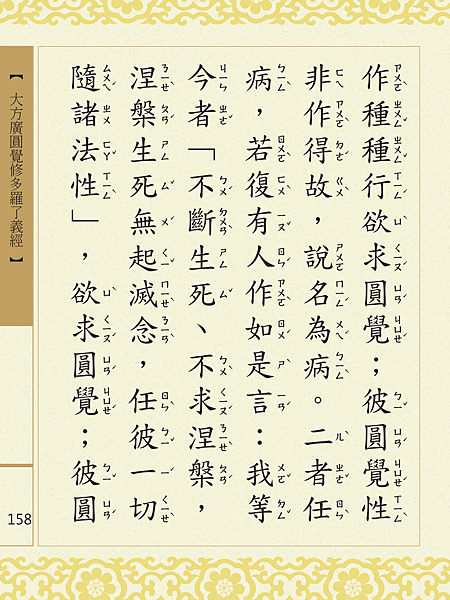 作種種行欲求圓覺；彼圓覺性
非作得故，說名為病。二者任
病，若復有人作如是言：我等
今者「不斷生死、不求涅槃，
涅槃生死無起滅念，任彼一切
隨諸法性」，欲求圓覺；彼圓
【大方廣圓覺修多羅了義經】
158